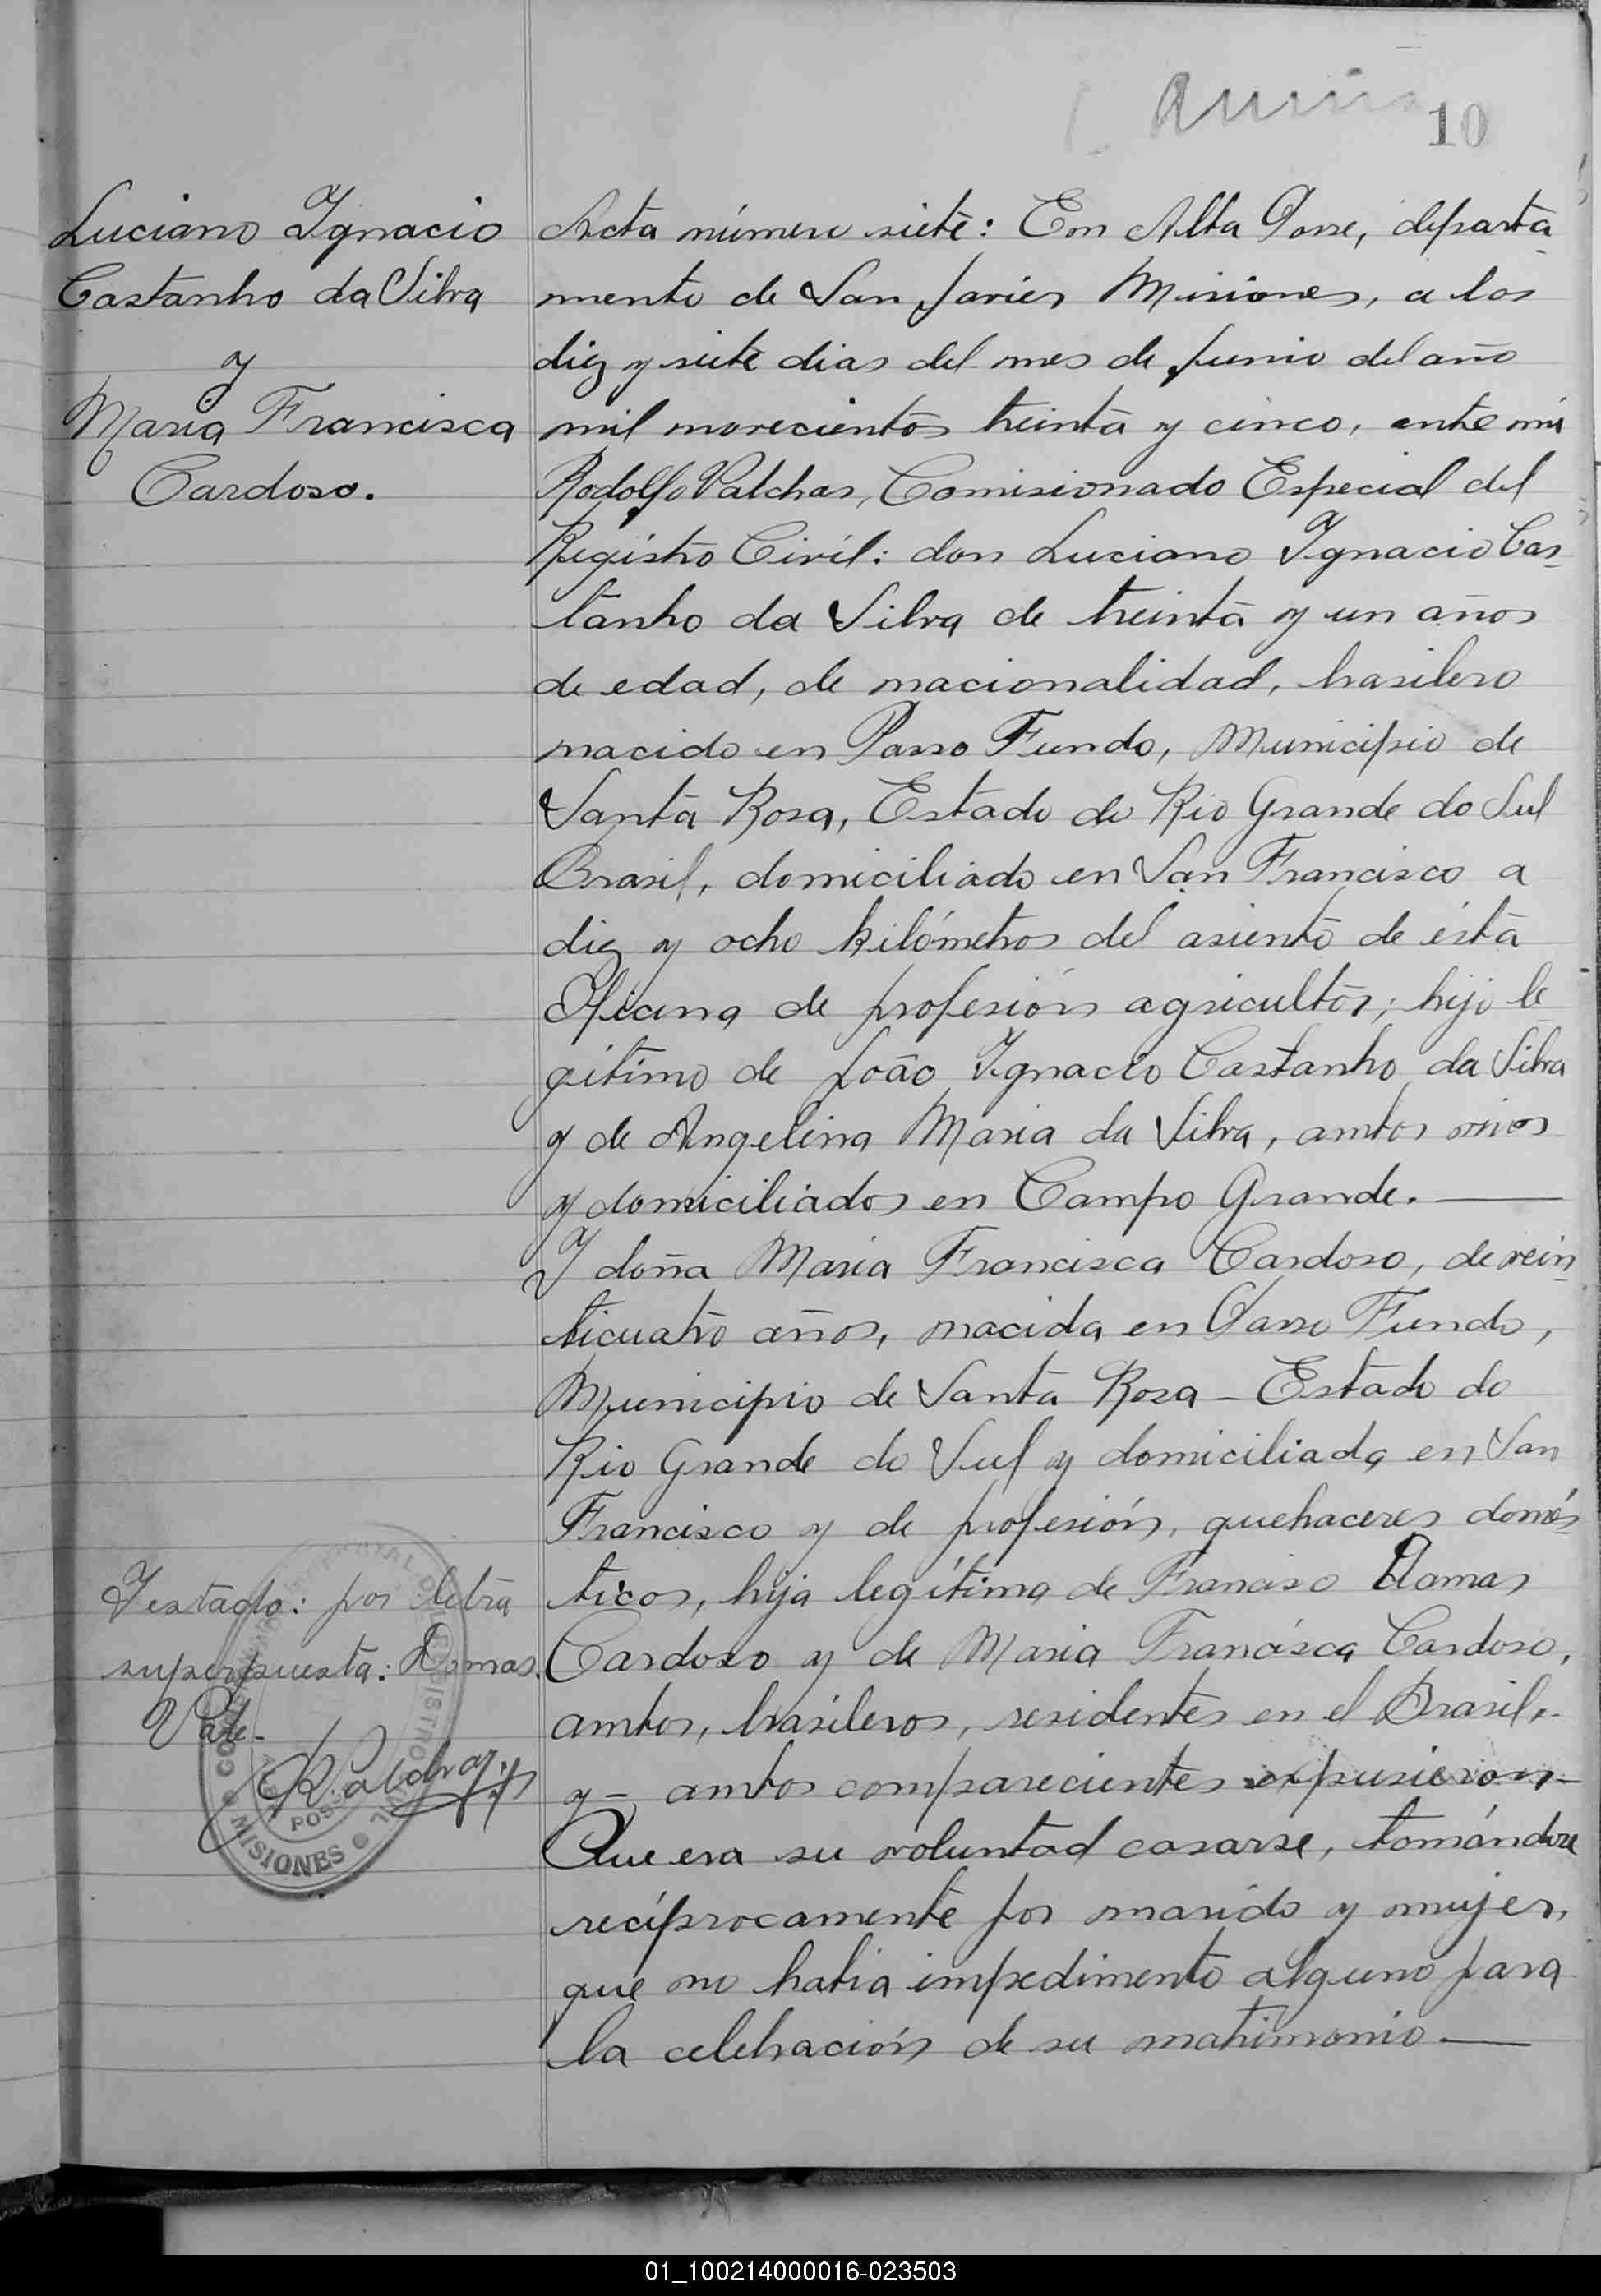 10
Luciano Ignacio
Castanho da Silva
y
Maria Francisca
Cardoso.
Acta número siete: En Alta Posse, departa
mento de San Javier Misiones, a los
diez y siete dias del mes de Junio del año
mil novecientos treinta y cinco, ante mi
Rodolfo Valchar, Comisionado Especial del
Registro Civil: don Luciano Ignacio Cas-
tanho da Silva de treinta y un años
de edad, de nacionalidad, brasilero
nacido en Passo Fundo, Municipio de
Santa Rosa, Estado do Rio Grande do Sul
Brasil, domiciliado en San Francisco a
diez y ocho kilómetros del asiento de ésta
Oficina de profesión agricultor; hijo le
gítimo de João Ignacio Castanho da Silva
y de Angelina Maria da Silva, ambos vivos
y domiciliados en Campo Grande.
Y doña Maria Francisca Cardoso, de vein
ticuatro años, nacida en Passo Fundo,
Municipio de Santa Rosa - Estado do
Rio Grande do Sul y domiciliada en San
Francisco y de profesión, quehaceres domés
ticos, hija legítima de Franciso Damas
Cardoso y de Maria Francisca Cardoso,
ambos, brasileros, residentes en el Brasil,-
y - ambos comparecientes expusieron-
Que era su voluntad casarse, tomándose
recíprocamente por marido y mujer,
que no habia impedimento alguno para
la celebración de su matrimonio
Testado: por letra
superpuesta: Damas.
Vale-
REGISTRO CIVIL
MISIONES
01_100214000016-023503